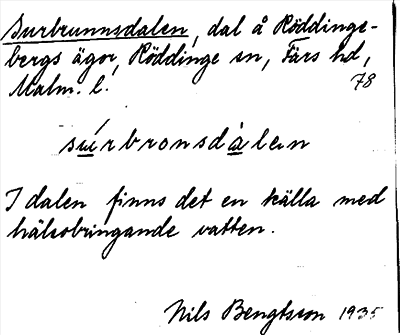 Surbrunnsdalen, dal å Röddinge-
bergs ägor, Röddinge sn, Färs hd,
Malm. l. 78
súrbronsdàlen
I dalen finns det en källa med
hälsobringande vatten.
Nils Bengtsson 1935